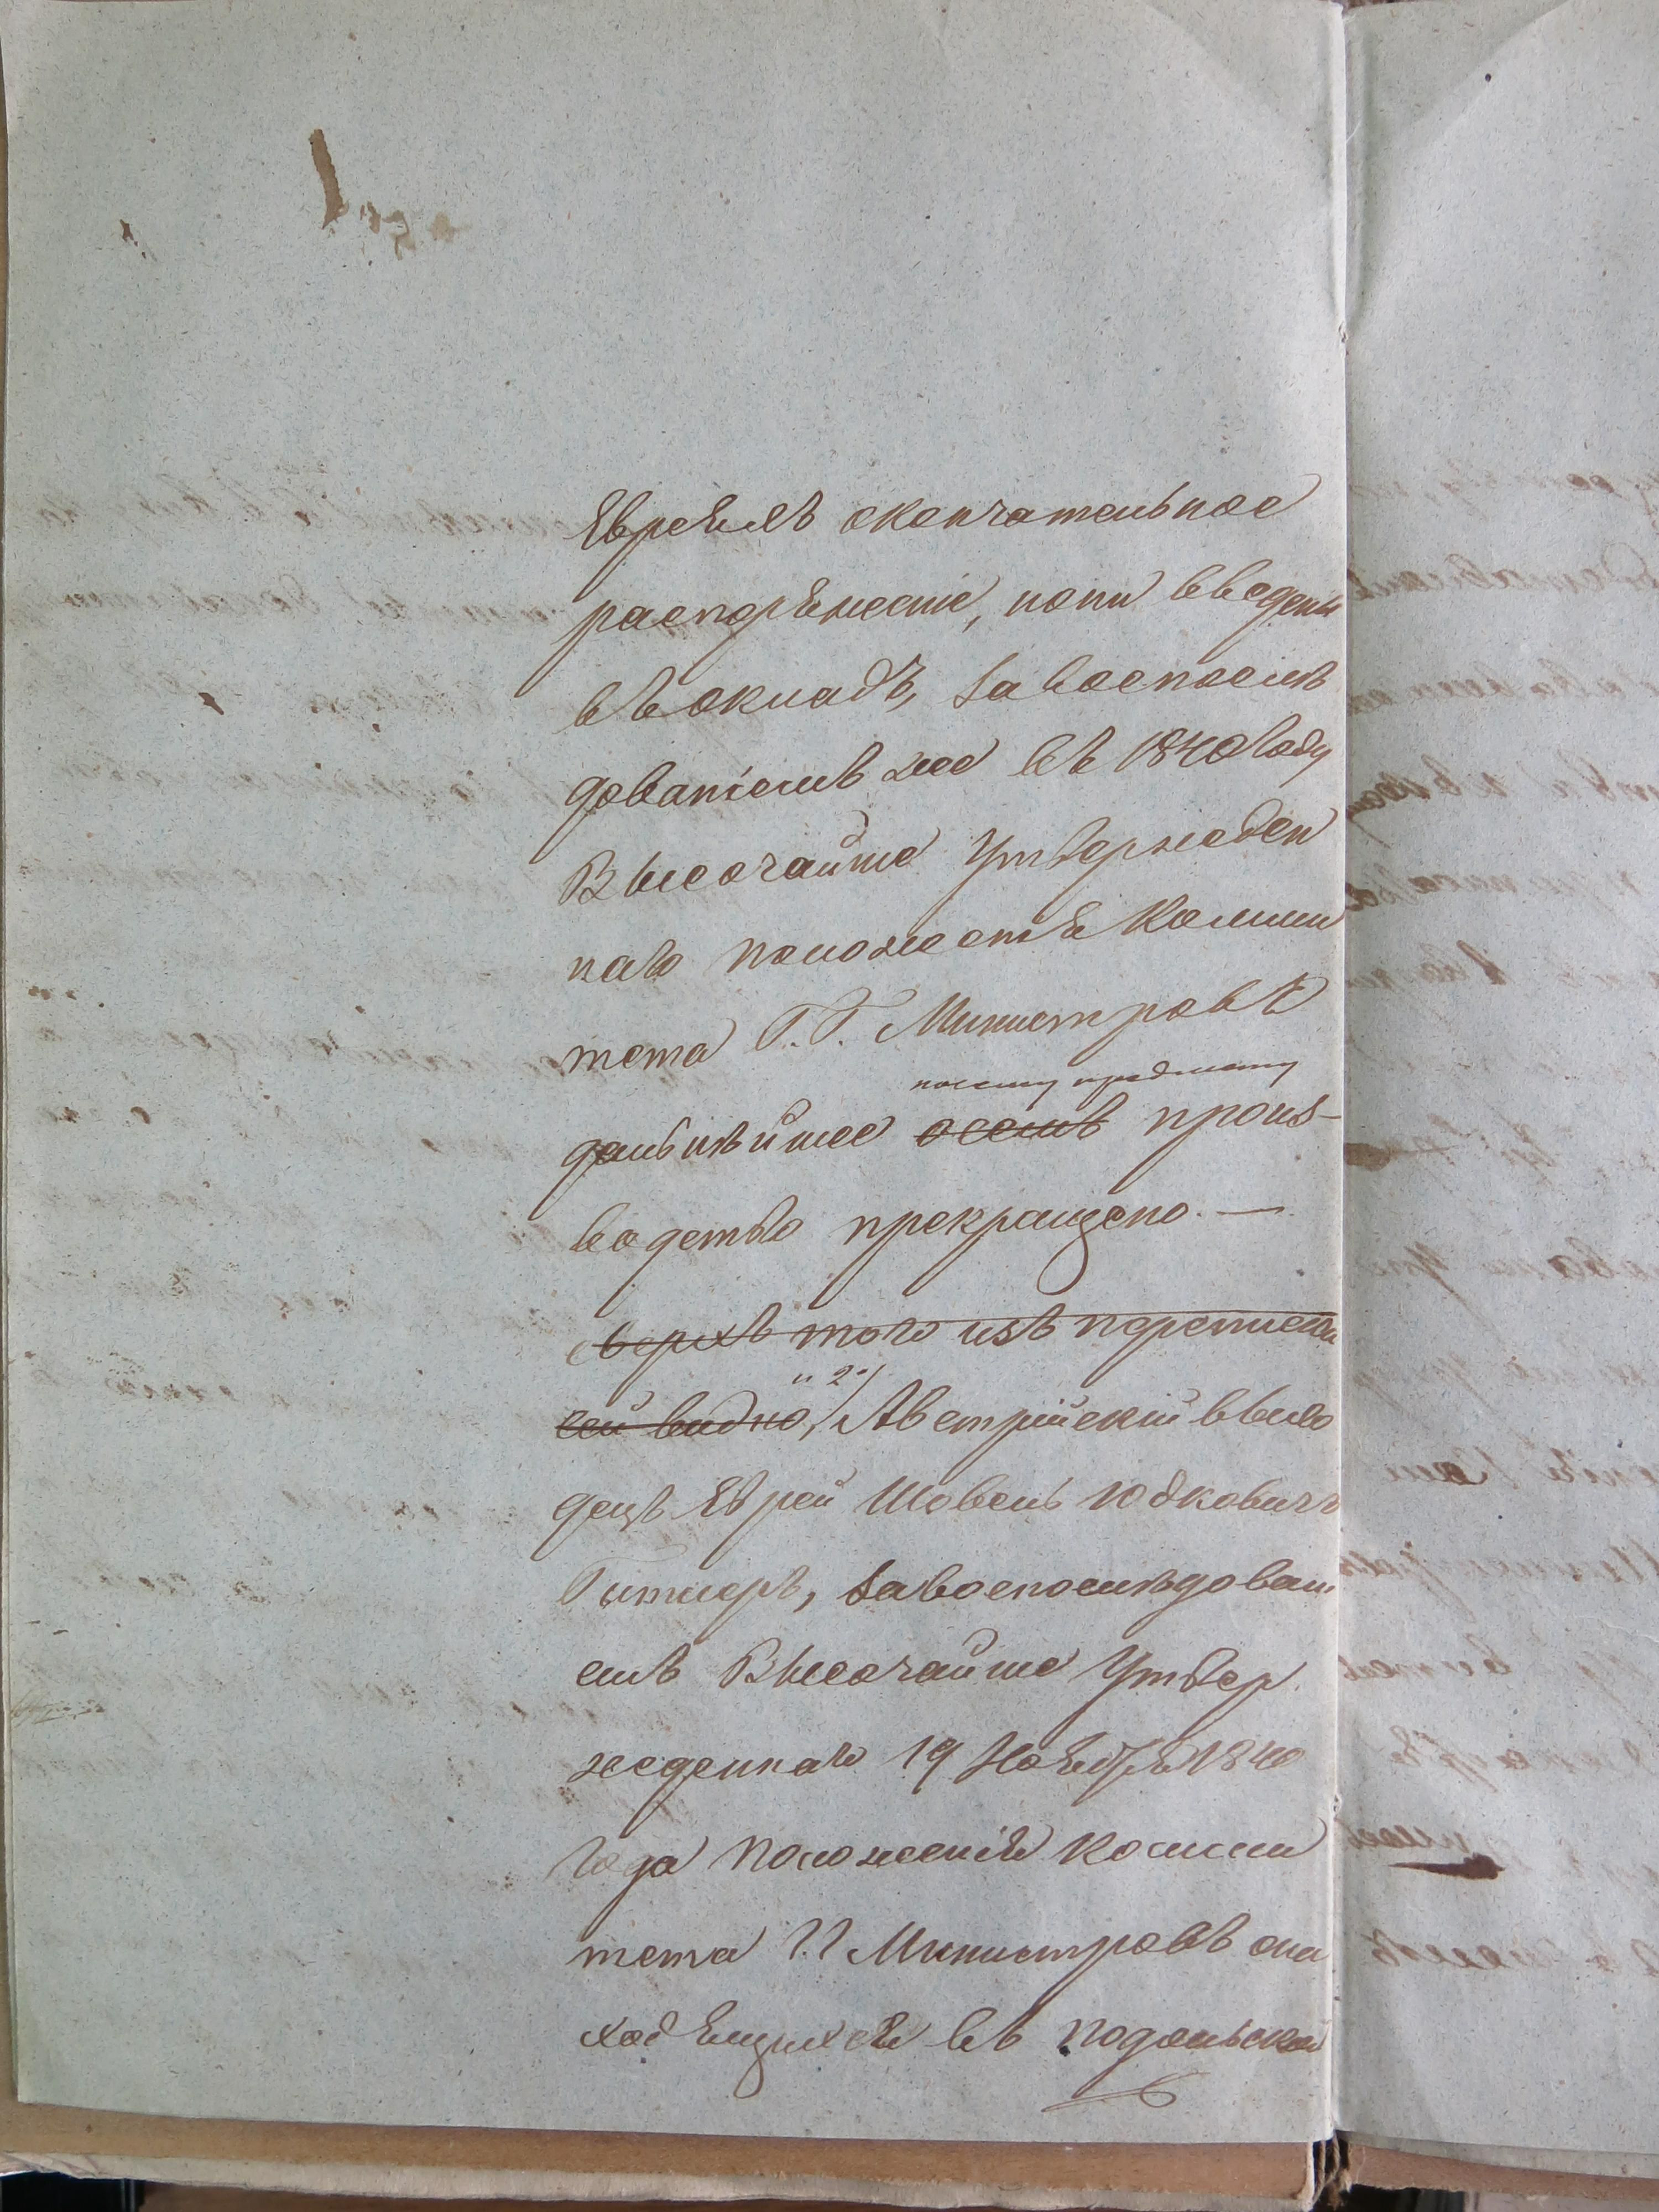 Евреямъ окончательное
распоряженіе, нопи введены
въ окладъ, за воспослѣ
дованіемъ же въ 1840 году
Высочайше Утвержден
наго положенія Коми
тета Г.Г. Министровъ
по сему предмету
дальнѣйшее о семъ произ-
водство прекращено. —
Сверхъ того изъ переписки
и 2.)
сей видно, Австрійскій выхо
децъ Еврей Шовель Юдковичъ
Гитлеръ, за воспослѣдовані
емъ Высочайше Утвер
жденнаго 19 Ноября 1840
года положенія Коми
тета Г.Г. Министровъ о на
ходящихся въ Подольской